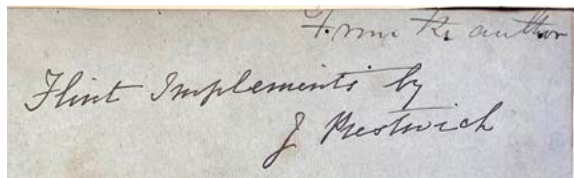 From the author
Flint Implements by
J Prestwich